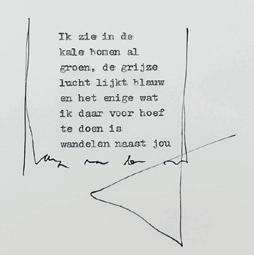 Ik zie in de
kale bomen al
groen, de grijze
lucht lijkt blauw
en het enige wat
ik daar voor hoef
te doen is
wandelen naast jou